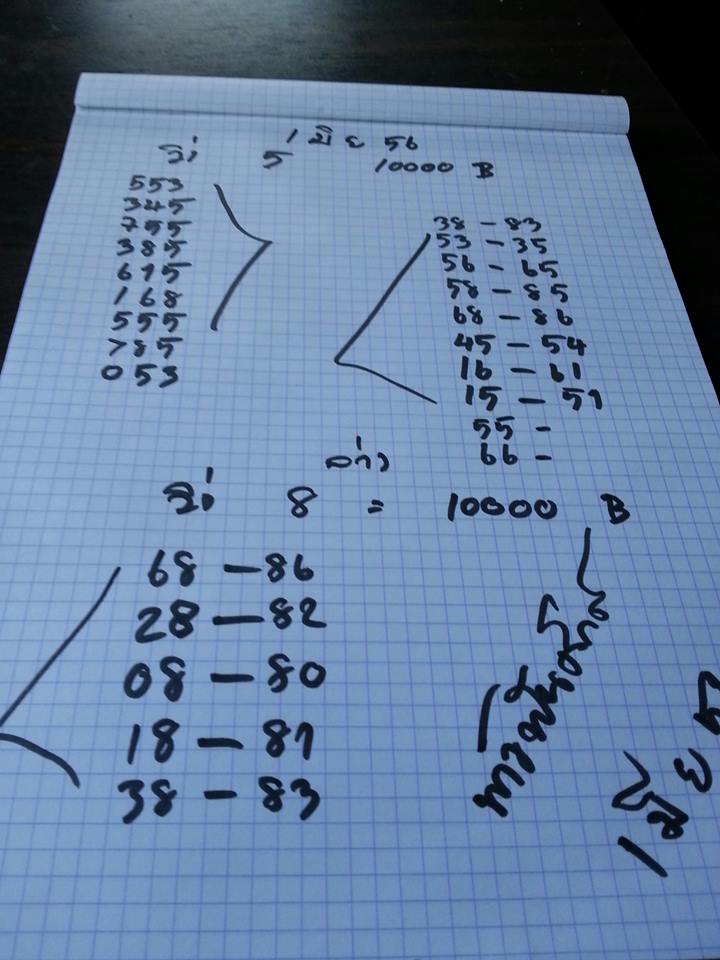 1 มิ ย 56
วิ่ง 5 10000 B
553
345
755
385
615
168
555
785
053
38 - 83
53 - 35
56 - 65
58 - 85
68 - 86
45 - 54
16 - 61
15 - 51
55 -
66 -
ล่าง
วิ่ง 8 = 10000 B
68 - 86
28 - 82
08 - 80
18 - 81
38 - 83
1 มิ ย 5